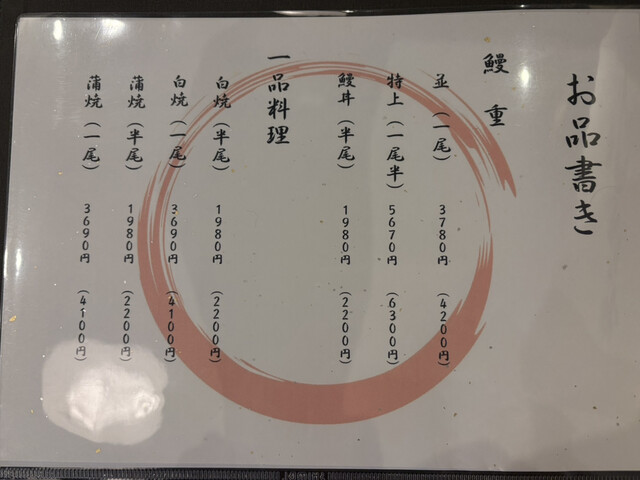 お品書き
鰻重
並（一尾） 3780円（4200円）
特上（一尾半） 5670円（6300円）
鰻丼（半尾） 1980円（2200円）
一品料理
白焼（半尾） 1980円（2200円）
白焼（一尾） 3690円（4100円）
蒲焼（半尾） 1980円（2200円）
蒲焼（一尾） 3690円（4100円）